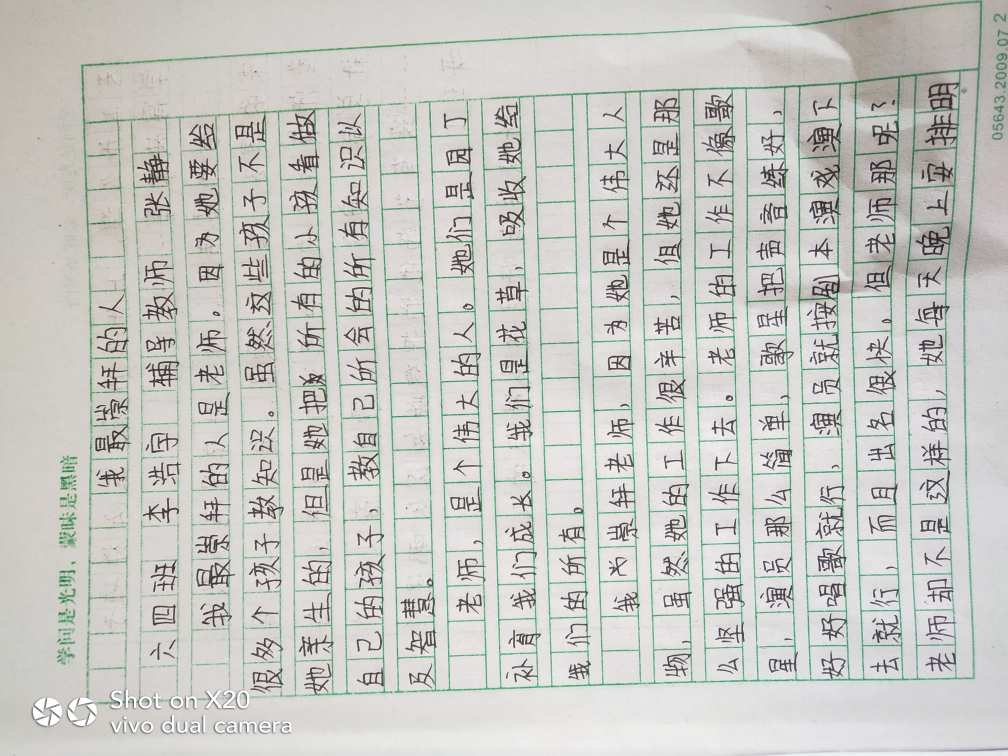 学问是光明，蒙昧是黑暗
我最崇拜的人
六四班 李浩宇 辅导教师 张静
我最崇拜的人是老师。因为她要给
很多个孩子教知识。虽然这些孩子不是
她亲生的，但是她把 所有的小孩看做
自己的孩子，教自己所会的所有知识以
及智慧。
老师，是个伟大的人。她们是园丁
补育我们成长。我们是花草，吸收她给
我们的所有。
我 崇拜老师，因为她是个伟大人
物，虽然她的工作很辛苦，但她还是那
么坚强的工作下去。老师的工作不像歌
星，演员那么简单，歌星把声音练好，
好好唱歌就行，演员就按剧本演戏演下
去就行，而且出名很快。但老师那呢？
老师却不是这样的，她每天晚上安排明
05643.2009.07 2
Shot on X20
vivo dual camera